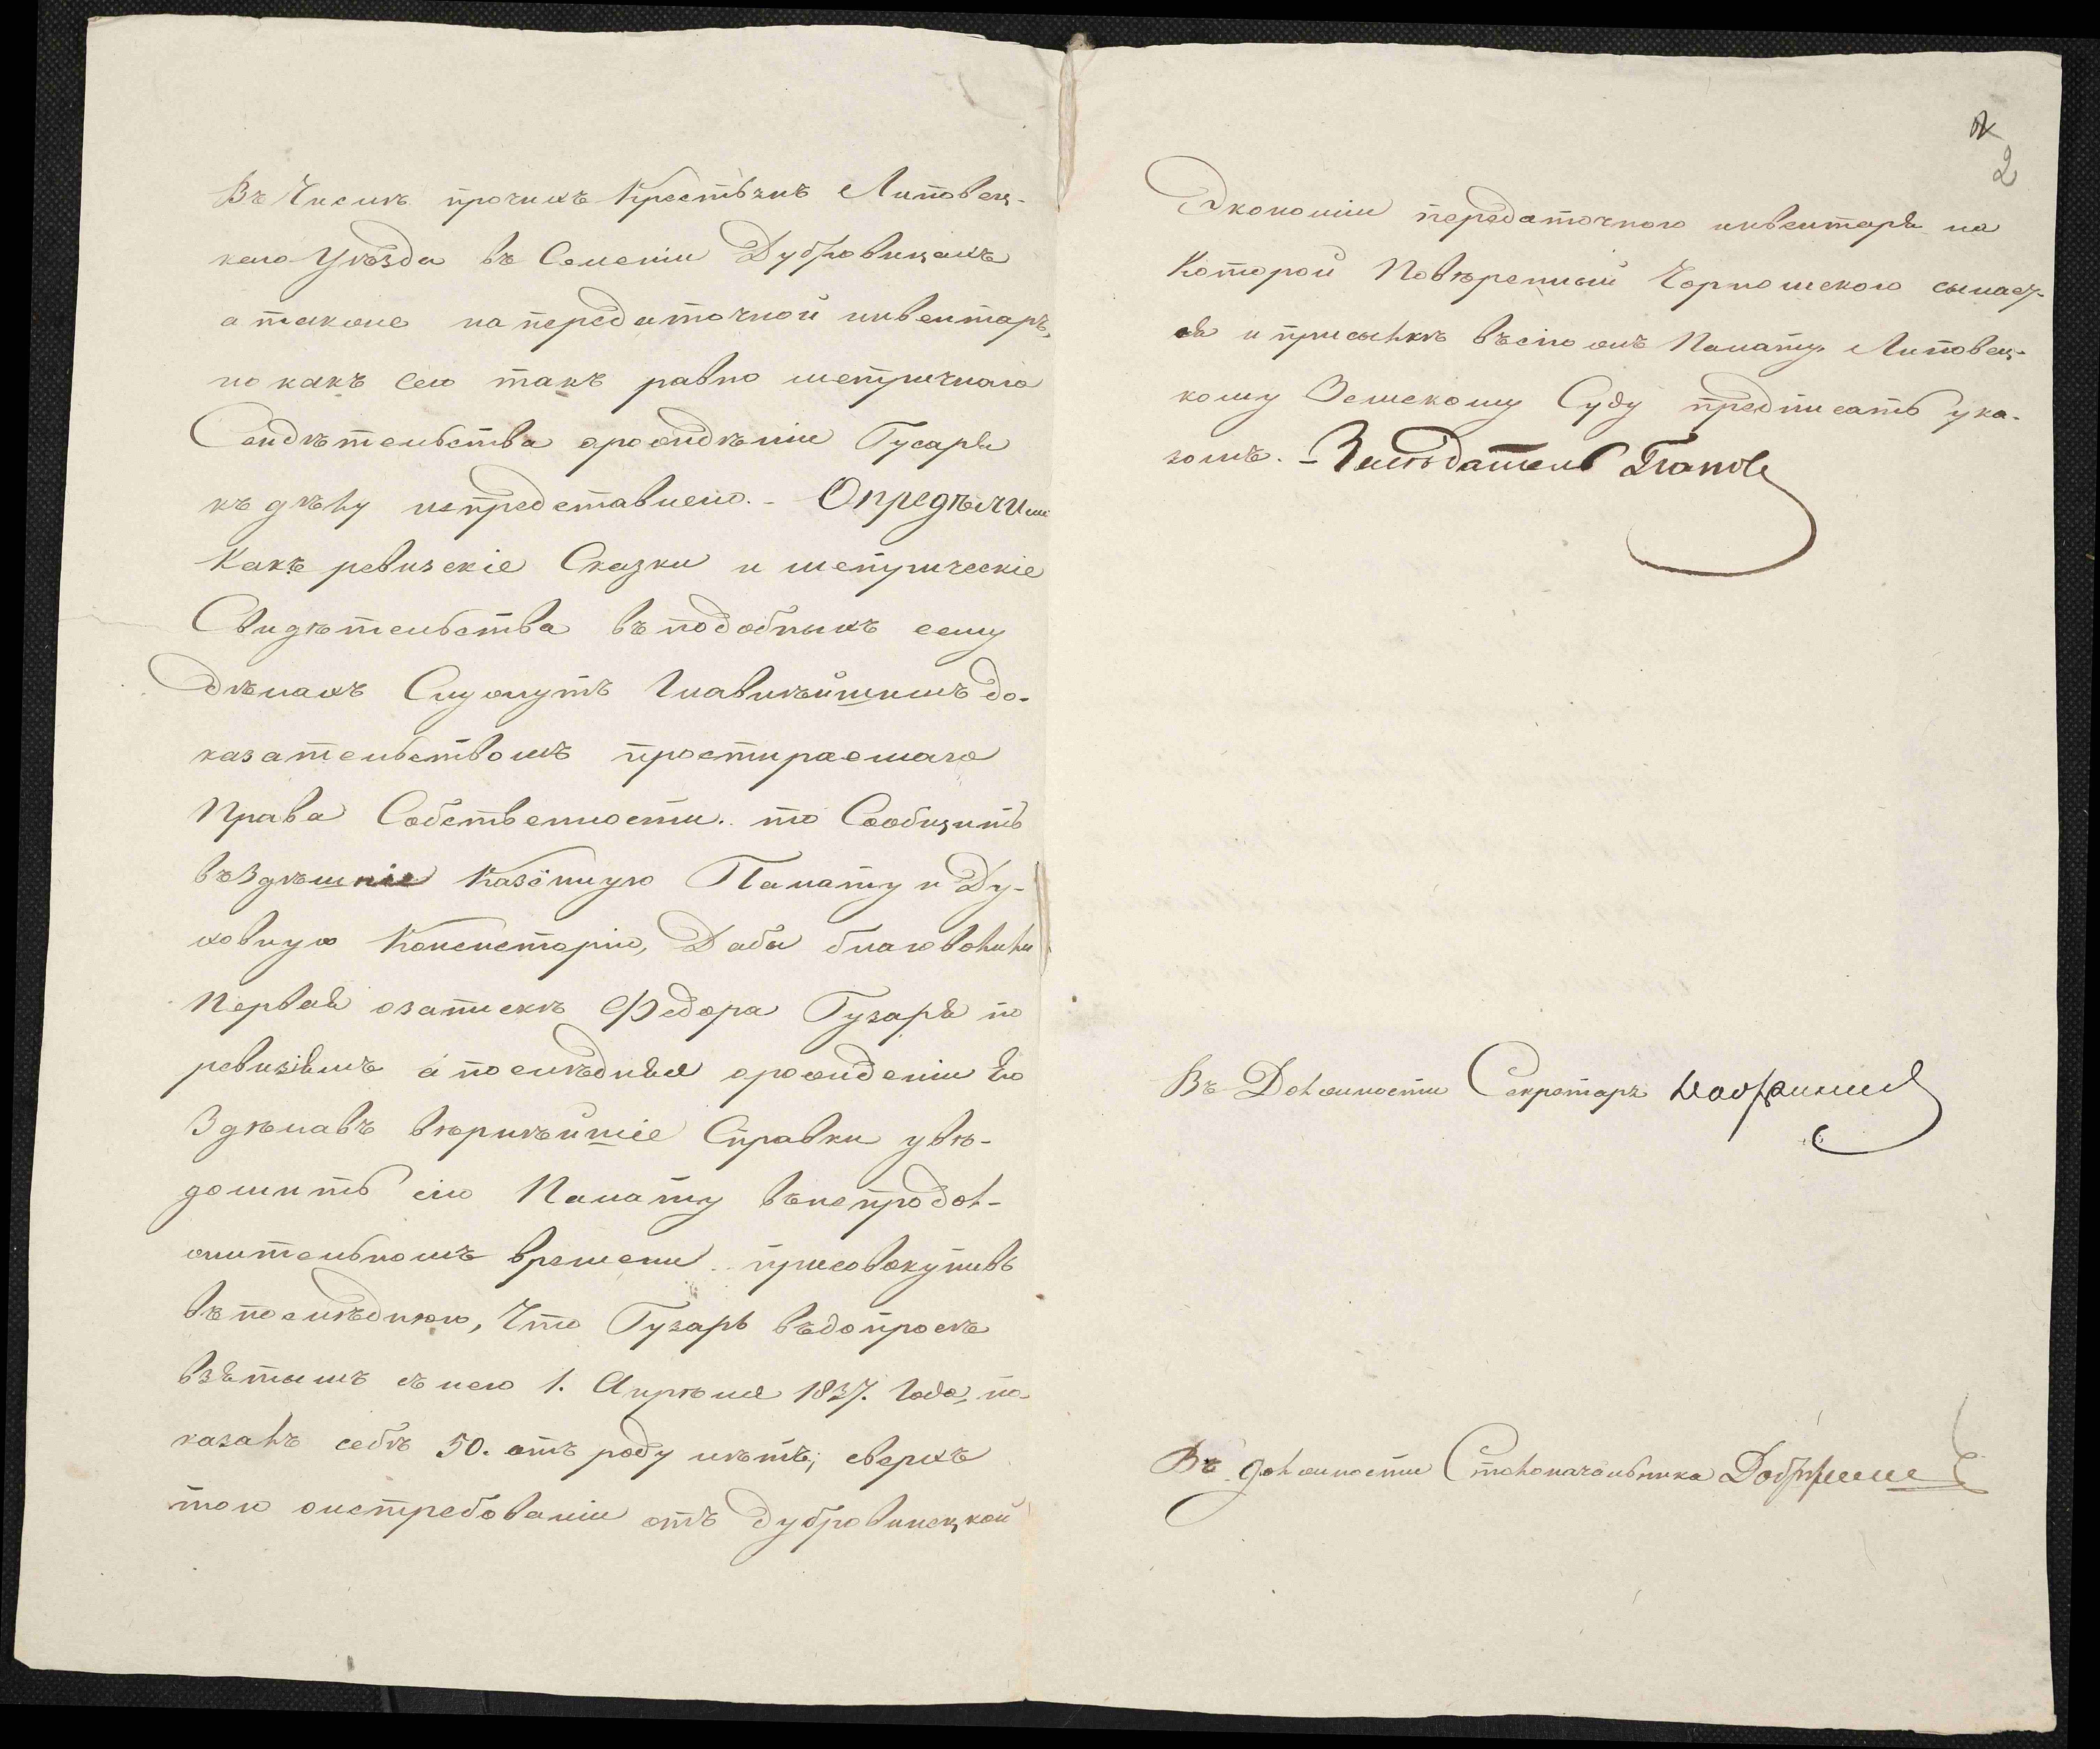 Въ Числѣ прочихъ Крестьянъ Липовец-
каго Уѣзда въ Селеніи Дубровинцахъ
а также на передаточной инвентарь,
но какъ сего такъ равно метричнаго
Свидѣтельства орожденіи Гусаря
къ дѣлу непредставлено. - Опредѣлили
Какъ ревизскіе Сказки и метрическіе
Свидѣтельства въ подобныхъ сему
дѣлахъ Служутъ Главнѣйшимъ до-
казательствомъ простираемаго
Права Собственности. то Сообщить
въ Здѣшніе Казённую Палату и Ду-
ховную Консисторію, Дабы благоволили
Первая озапискѣ Федора Гузаря по
ревизіямъ а послѣдняя орожденіи Его
Здѣлавъ вѣрнѣйшіе Справки увѣ-
домить сію Палату въ непродол-
жительномъ времени присовокупивъ
въ послѣднюю, Что Гузарь въ допросѣ
взятымъ съ него 1. Апрѣля 1837. Года, по-
казалъ себѣ 50. отъ роду лѣтъ; сверхъ
того оистребованіи отъ Дубровинецкой
2
Экономіи передаточного инвентаря на
Которой Повѣренный Чорномского сылает-
ся и присылкѣ въ сію жъ Палату Липовец-
кому Земскому Суду предписать ука-
зомъ. - Засѣдатель
Въ Должности Секретарь
Въ должности Столоначальника